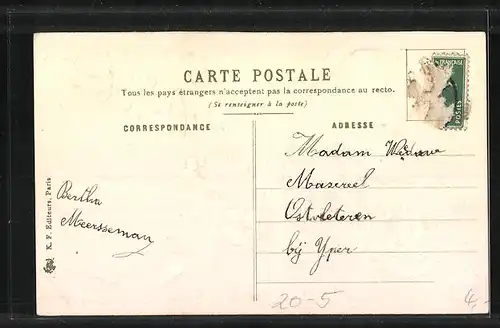 CARTE POSTALE
Tous les pays étrangers n'acceptent pas la correspondance au recto.
(Se renseigner à la poste)
CORRESPONDANCE
ADRESSE
FRANÇAISE
POSTES
Madam
Masereel
Ostvleteren
bij Yper
Bertha
Meersseman
K. F. Editeurs, Paris
20-5
4,-